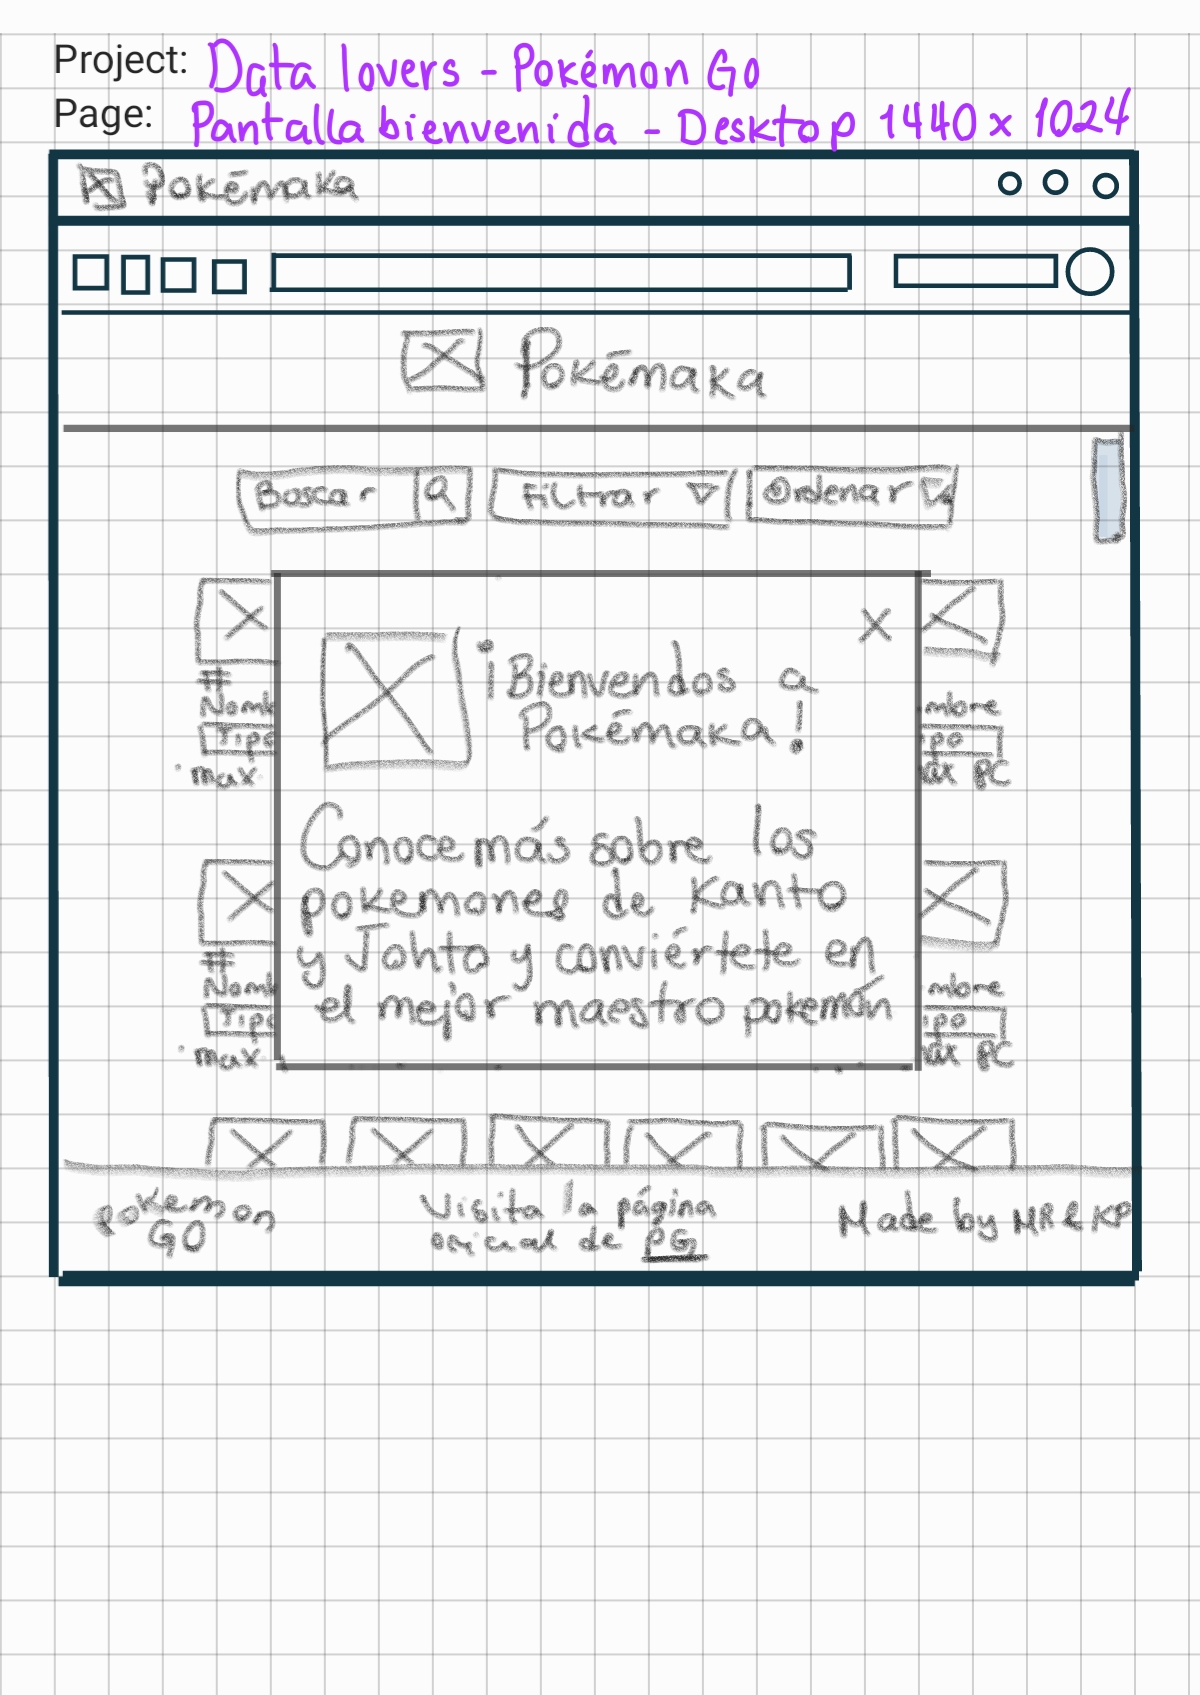 Project: Data lovers - Pokémon GO
Page: Pantalla bienvenida - Desktop 1440 x 1024
Pokémaka
Pokémaka
Buscar Filtrar Ordenar
¡Bienvendos a
Pokémaka!
#
Nomb
Tipo
max
mbre
ipo
ax PC
Conoce más sobre los
pokemones de Kanto
y Johto y conviértete en
el mejor maestro pokemón
#
Nomb
Tipo
max
mbre
ipo
ax PC
pokemon
GO
Visita la página
oficial de PG
Made by MR & KP